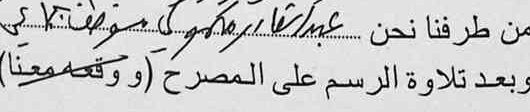 من طرفنا نحن عبدالقادر موظف
وبعد تلاوة الرسم على المصرح (ووقعه معنا)